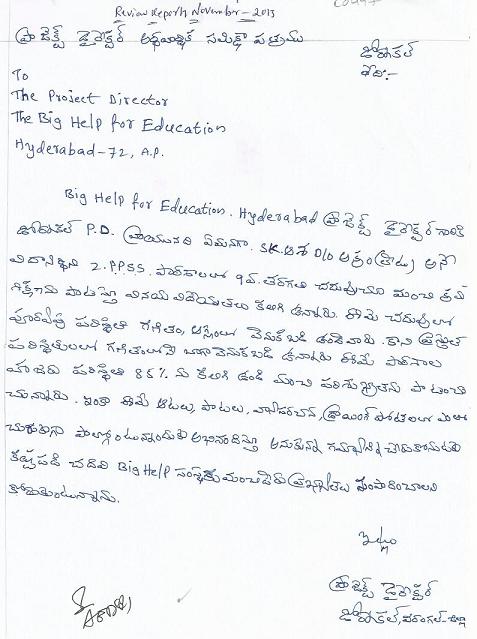 Review Report November - 2013
ప్రాజెక్ట్ డైరెక్టర్ అర్ధవార్షిక సమీక్షా పత్రము
జోకల్
తేది:-
To
The Project Director
The Big Help for Education
Hyderabad-72, A.P.
Big Help for Education. Hyderabad ప్రాజెక్ట్ డైరెక్టర్ గారికి
P.D. వ్రాయునది ఏమనగా. SK. ఆశ D/o అక్రం అనే
విద్యార్థిని Z.P.P.S.S. పాఠశాలలో 9వ. తరగతి చదువుచూ మంచి క్రమ
శిక్షణను పాటిస్తూ వినయ విధేయతలు కలిగి ఉన్నారు. ఈమె చదువులో
పూర్వపు పరిస్థితి గణితం, లో వెనుకబడి ఉండేవారు. కాని ప్రస్తుత
పరిస్థితులలో గణితంలోనే బాగా వెనుకబడి ఉన్నారు ఈమె పాఠశాల
హాజరు పరిస్థితి 85% ను కలిగి ఉండి మంచి పరిశుభ్రతను పాటించు
చున్నారు. ఇంకా ఈమె ఆటలు, పాటలు, డ్రాయింగ్ పోటీలలో ఎంతో
చురుకుగా పాల్గొంటున్నందుకు అభినందిస్తూ అనుకున్న గమ్యాన్ని చేరుకోవడానికి
కష్టపడి చదివి Big Help సంస్థకు మంచి పేరు ప్రఖ్యాతలు సంపాదించాలని
కోరుకుంటున్నాను.
ఇట్లు
ప్రాజెక్ట్ డైరెక్టర్
వరంగల్-జిల్లా